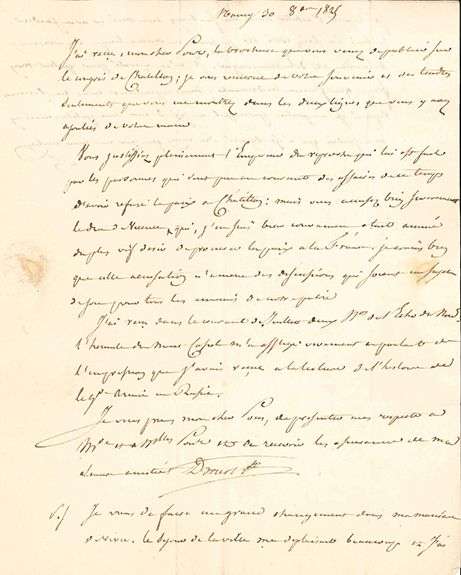 Nancy 30 8bre 1825
J'ai reçu, mon cher Pons, la brochure que vous venez de publier sur
le congrès de Chatillon; je vous remercie de votre souvenir et des tendres
sentiments que vous me montrez dans les deux lignes que vous y avez
ajoutés de votre main
Vous justifiez pleinement l'Empereur du reproche qui lui est fait
par les personnes qui sont peu au courant des affaires de ce temps
d'avoir refusé la paix à Chatillon; mais vous accusez bien
le duc de qui, j'en suis bien convaincu était animé
du plus vif désir de procurer la paix à la France. je crains bien
que cette accusation n'amène des discussions qui seront un sujet
de joie pour tous les ennemis de notre patrie
J'ai reçu dans le courant de Juillet deux Nos de l'Echo du Nord.
L'homme du m'a affligé vivement
l'impression que j'avais reçue à la lecture de l'histoire de
la Gde Armée en Russie.
Je vous prie mon cher Pons, de présenter mes respects à
Me et à Melles Pons et de recevoir les assurances de ma
amitié Drouot
P.S Je viens de faire un grand changement dans ma manière
de vivre. le séjour de la ville me déplaisait beaucoup et j'ai